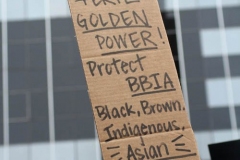 GOLDEN
POWER!
Protect
BBIA
Black, Brown,
Indigenous,
Asian